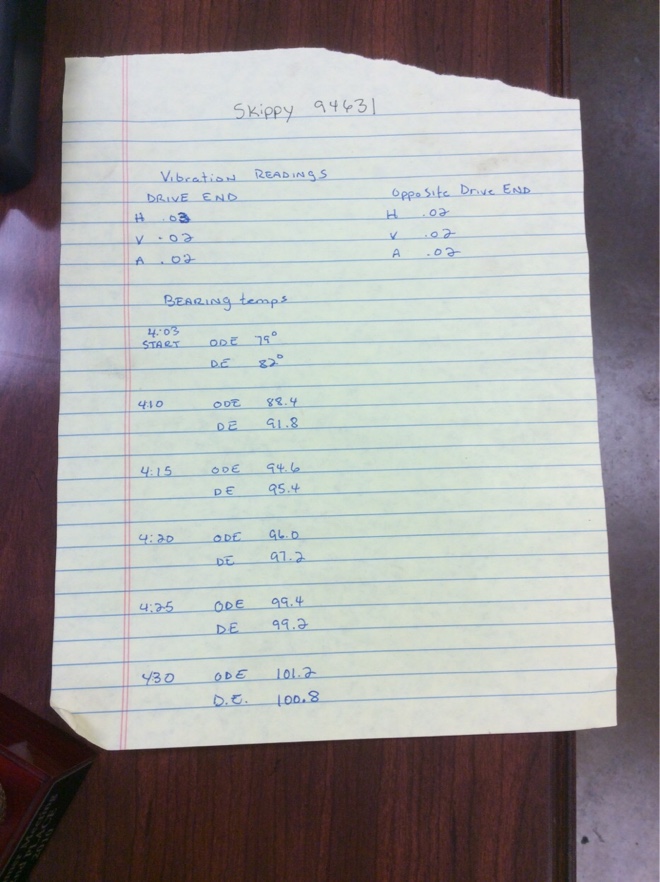 Skippy 94631
Vibration READINGS
DRIVE END
H .03
V .02
A .02
Opposite Drive END
H .02
V .02
A .02
BEARING temps
4:03
START ODE 79°
DE 82°
4:10 ODE 88.4
DE 91.8
4:15 ODE 94.6
DE 95.4
4:20 ODE 96.0
DE 97.2
4:25 ODE 99.4
DE 99.2
430 ODE 101.2
D.E. 100.8